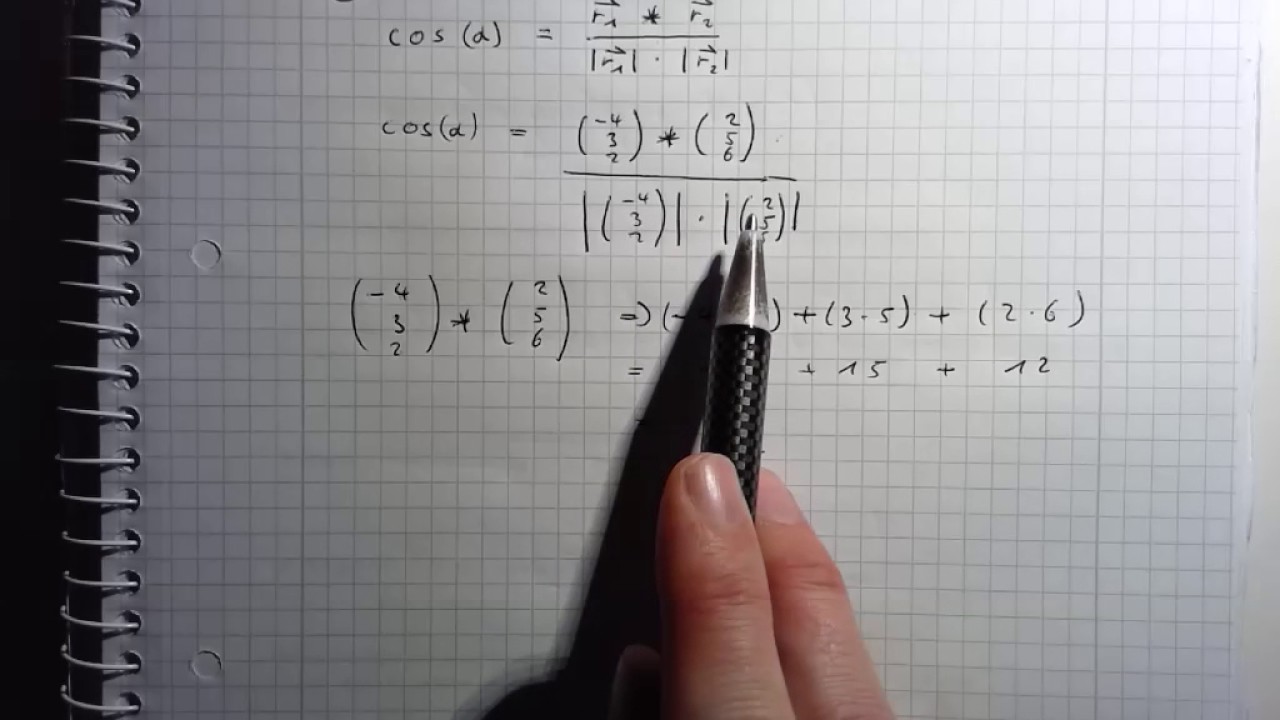 cos(α) = r₁ * r₂ / |r₁| · |r₂|
cos(α) = (-4 3 2) * (2 5 6) / |(-4 3 2)| · |(2 5)|
(-4 3 2) * (2 5 6) => (- ) + (3·5) + (2·6)
= + 15 + 12